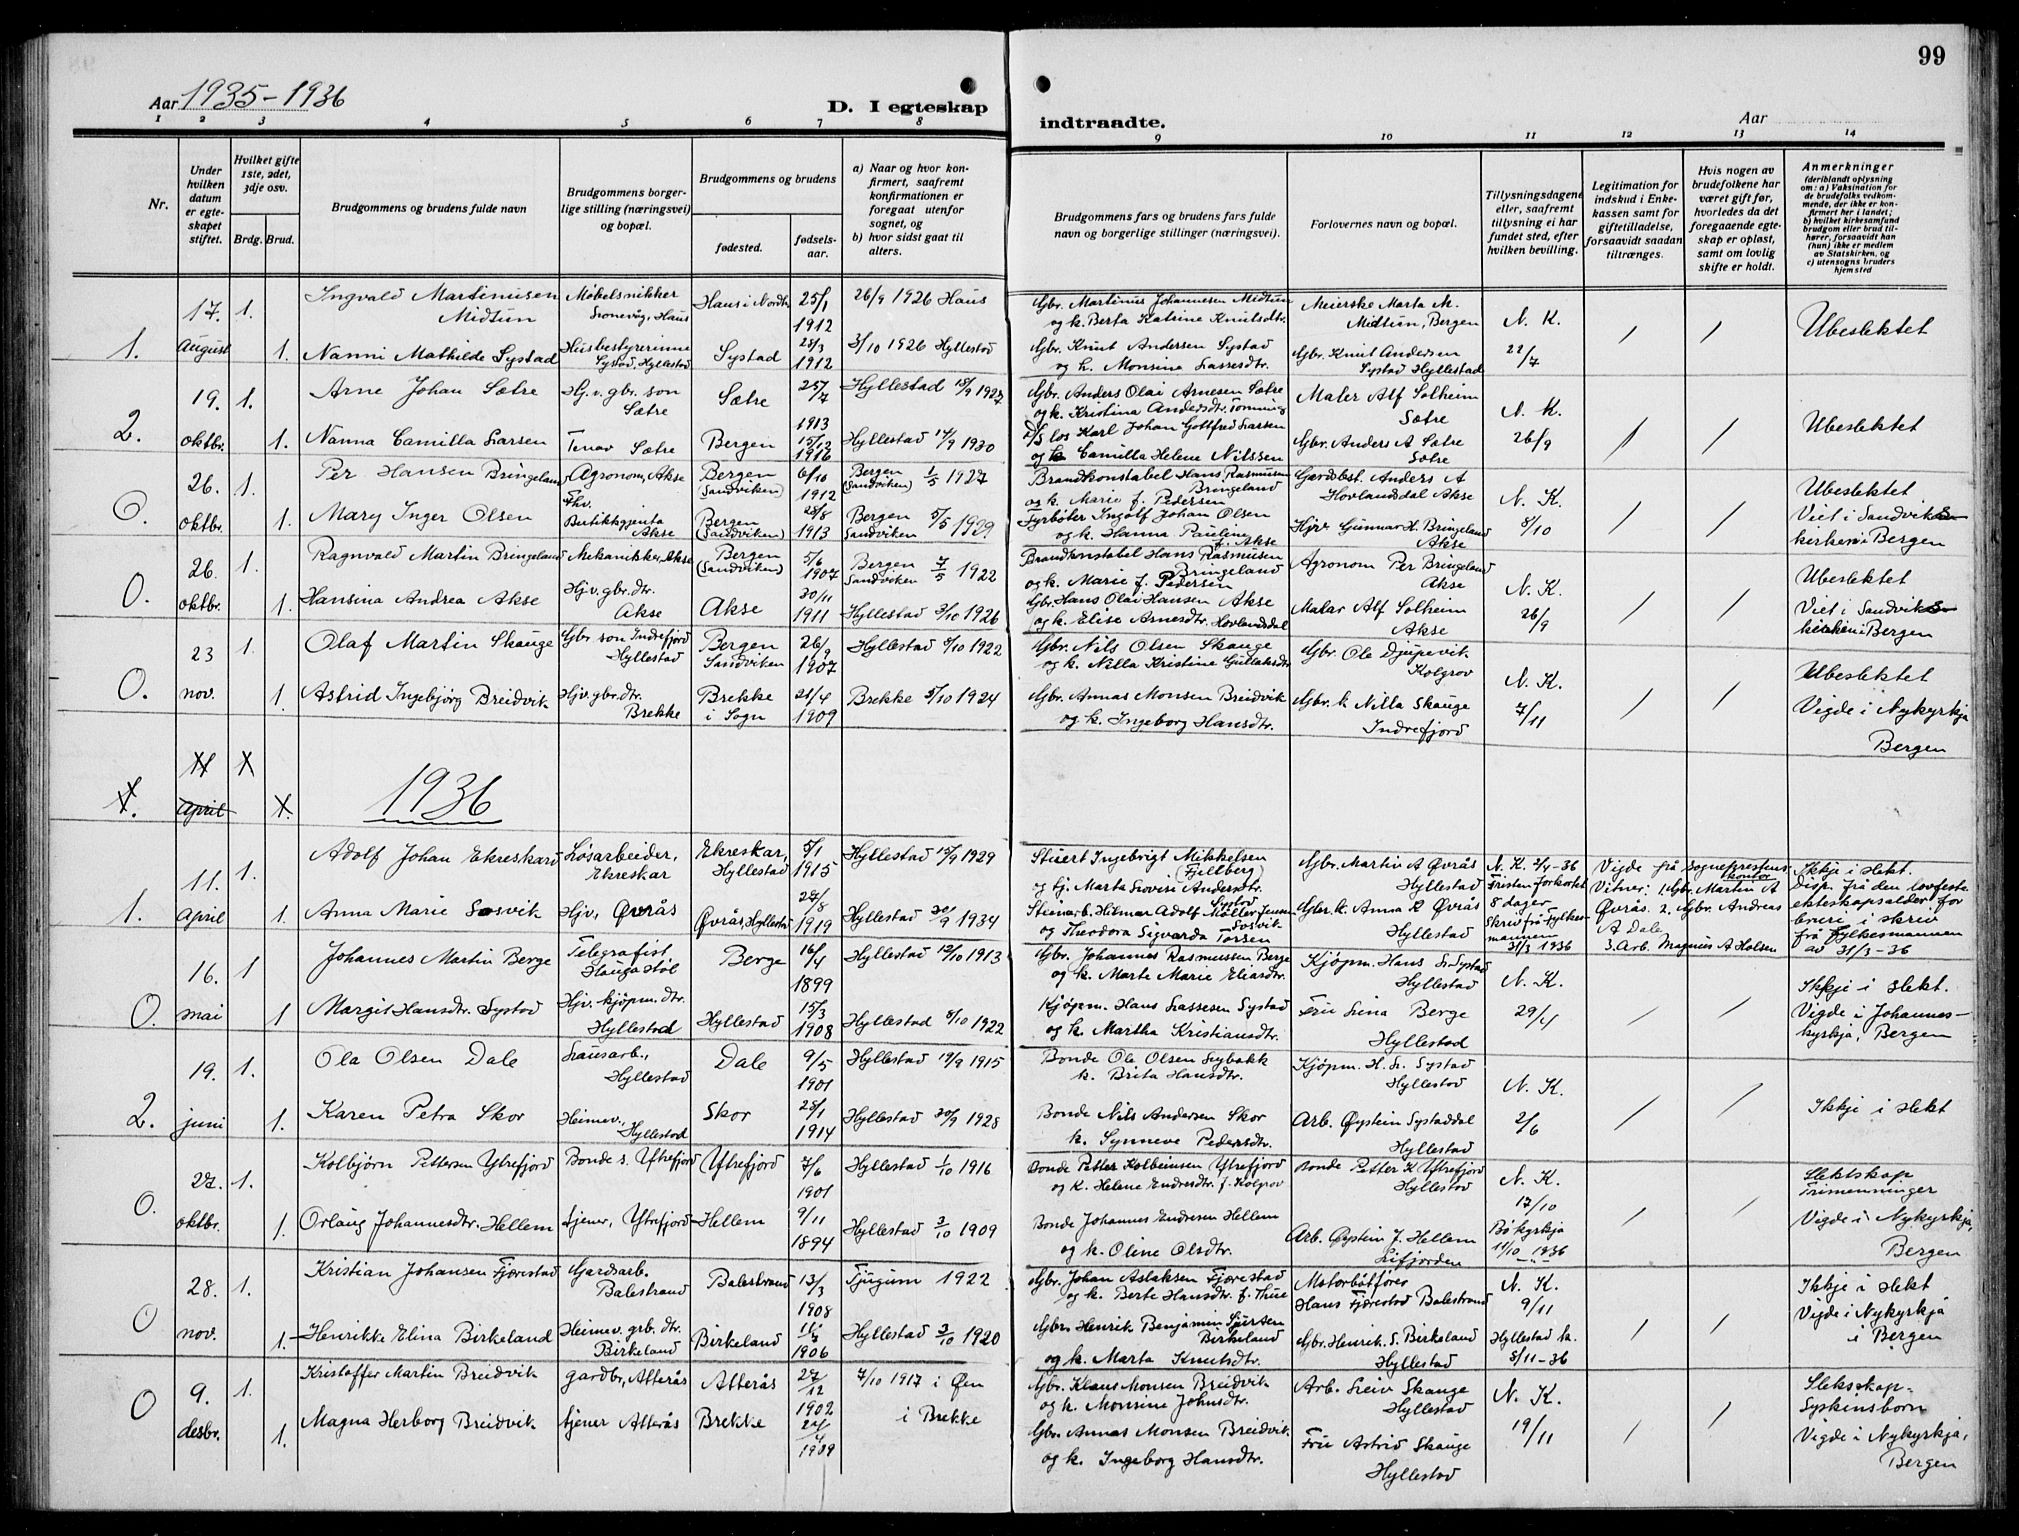 99
Aar 1935-1936
D. I egteskap
indtraadte.
Aar
1 2 3 4 5 6 7 8 9 10 11 12 13 14
Nr.
Under hvilken datum er egte-skapet stiftet.
Hvilket gifte 1ste, 2det, 3dje osv.
Brdg. Brud.
Brudgommens og brudens fulde navn
Brudgommens borger-lige stilling (næringsvei) og bopæl.
Brudgommens og brudens
fødested.
fødsels-aar.
a) Naar og hvor kon-firmert, saafremt konfirmationen er foregaat utenfor sognet, og
b) hvor sidst gaat til alters.
Brudgommens fars og brudens fars fulde navn og borgerlige stillinger (næringsvei).
Forlovernes navn og bopæl.
Tillysningsdagene eller, saafremt tillysning ei har fundet sted, efter hvilken bevilling.
Legitimation for indskud i Enke-kassen samt for giftetilladelse, forsaavidt saadan tiltrænges.
Hvis nogen av brudefolkene har været gift før, hvorledes da det foregaaende egte-skap er opløst, samt om lovlig skifte er holdt.
Anmerkninger
(deriblandt oplysning om: a) Vaksination for de brudefolks vedkom-mende, der ikke er kon-firmert her i landet; b) hvilket kirkesamfund brudgom eller brud til-hører, forsaavidt han (hun) ikke er medlem av Statskirken, og c) utensogns bruders hjemsted
1. 17. August 1. Ingvald Martinusen Midtun Møbelsnikker Haus Haus i Nordh. 25/1 1912 26/9 1926 Haus
Gbr. Martinus Johannesen Midtun og k. Berta Katrine Knutsdtr. Meierske Marta M. Midtun, Bergen N. K. 22/7 / / Ubeslektet
1. Nanni Mathilde Systad Husbestyrerinne Systad, Hyllestad Systad 28/3 1912 3/10 1926 Hyllestad
Gbr. Knut Andersen Systad og k. Monsine Lassesdtr. Gbr. Knut Andersen Systad Hyllestad
2. 19. oktbr. 1. Arne Johan Sætre Hj. v. gbr. son Sætre Sætre 25/7 1913 Hyllestad 18/9 1927
Gbr. Anders Olai Arnesen Sætre og k. Kristina Andersdtr. Tømming Maler Alf Solheim Sætre N. K. 26/9 / / Ubeslektet
1. Nanna Camilla Larsen Tenar Sætre Bergen 15/12 1916 Hyllestad 14/9 1930
D/S los Karl Johan Gottfred Larsen og k Camilla Helene Nilssen Gbr. Anders A Sætre Sætre
0. 26. oktbr. 1. Per Hansen Bringeland Agronom, Akse Bergen (Sandviken) 6/10 1912 Bergen (Sandviken) 1/5 1927
Brandkonstabel Hans Rasmusen Bringeland og k. Marie f. Pedersen Gardsbst. Anders A Hovlandsdal Akse N. K. 8/10 / / Ubeslektet Viet i Sandviks kirken i Bergen
1. Mary Inger Olsen Fhv. Butikkgjenta Akse Bergen (Sandviken) 28/8 1913 Bergen Sandviken 5/5 1929
Fyrbøter Ingolf Johan Olsen og k. Hanna Pauline f. Akse Hjv Gunnar H. Bringeland Akse
0. 26. oktbr. 1. Ragnvald Martin Bringeland Mekaniker, Akse Bergen (Sandviken) 5/6 1907 Bergen Sandviken 7/5 1922
Brandkonstabel Hans Rasmusen Bringeland og k. Marie f. Pedersen Agronom Per Bringeland Akse N. K. 26/9 / / Ubeslektet Viet i Sandviks kirken i Bergen
1. Hansina Andrea Akse Hj v. gbr. dtr. Akse Akse 30/11 1911 Hyllestad 3/10 1926
Gbr. Hans Olai Hansen Akse og k. Elise Arnesdtr. Hovlandsdal Malar Alf Solheim Akse
0. 23 nov. 1. Olaf Martin Skauge Gbr. son Indrefjord Hyllestad Bergen Sandviken 26/9 1907 Hyllestad 8/10 1922
Gbr. Nils Olsen Skauge og k. Nilla Kristine Gullaksdtr Gbr. Ole Djupevik Kolgrov N. K. 7/11 / / Ubeslektet Vigde i Nykyrkja Bergen
1. Astrid Ingebjørg Breidvik Hjv. gbr. dtr. Brekke Brekke i Sogn 21/4 1909 Brekke 5/10 1924
Gbr. Annas Monsen Breidvik og k. Ingeborg Hansdtr. Gbr. k. Nilla Skauge Indrefjord
April
1936
1. 11. April 1. Adolf Johan Ekreskard Løsarbeider, Ekreskar Ekreskar, Hyllestad 5/1 1915 Hyllestad 15/9 1929
Stuert Ingebrigt Mikkelsen (Fjellberg) og Marta Lovise Andersdtr. Systad Gbr. Martin A Øvrås Hyllestad N. K. 2/4-36 Fristen forkortet 8 dager Skriv frå Fylkesmannen 31/3 1936 Vigde frå Sogneprestens kontor Vitner: 1. Gbr. Martin A Øvrås. 2. Gbr. Andreas A Dale 3. Arb. Magnus A Holsen Ikkje i slekt. Disp. frå den lovfeste ekteskapsalder for bruri i skriv frå Fylkesmannen av 31/3-36
1. Anna Marie Sosvik Hjv, Øvrås Øvrås, Hyllestad 28/8 1919 Hyllestad 30/9 1934
Steinarb. Hilmar Adolf Møller Jensen Sosvik og Theodora Sigvarda Tossen Gbr. k. Anna R Øvrås Hyllestad
0. 16. mai 1 Johannes Martin Berge Telegrafist Haugastøl Berge 16/4 1899 Hyllestad 12/10 1913
Gbr. Johannes Rasmussen Berge og k. Marte Marie Eliasdtr. Kjøpm. Hans L. Systad Hyllestad N. K. 29/4 / / Ikkje i slekt. Vigde i Johannes-kyrkja, Bergen
1 Margit Hansdtr. Systad Hjv. kjøpm. dtr. Hyllestad Hyllestad 15/3 1908 Hyllestad 8/10 1922
Kjøpm. Hans Lassesen Systad og k. Martha Kristiansdtr. Fru Lina Berge Hyllestad
2. 19. juni 1. Ola Olsen Dale Lausarb., Hyllestad Dale 9/5 1901 Hyllestad 19/9 1915
Bonde Ole Olsen k. Brita Hansdtr. Kjøpm. H. L. Systad Hyllestad N. K. 2/6 / / Ikkje i slekt
1. Karen Petra Skor Heimev., Hyllestad Skor 28/1 1914 Hyllestad 30/9 1928
Bonde Nils Andersen Skor k. Synneve Pedersdtr. Arb. Øystein Systaddal Hyllestad
0. 27. oktbr. 1. Kolbjørn Pettersen Ytrefjord Bonde s. Ytrefjord Ytrefjord 7/6 1901 Hyllestad 1/10 1916
Bonde Petter Kolbeinsen Ytrefjord og k. Helene Endresdtr. f. Kolgrov Bonde Petter K Ytrefjord Hyllestad N. K. 17/10 Bø kyrkja 11/10 1936 / / Slektskap Trimenninger Vigde i Nykyrkja, Bergen
1. Orlaug Johannesdtr. Hellem tjener, Ytrefjord Hellem 9/11 1894 Hyllestad 3/10 1909
Bonde Johannes Endresen Hellem og k. Oline Olsdtr. Arb. Øystein J. Hellem Lifjorden
0 28. nov. 1. Kristian Johansen Fjærestad Gardsarb. Balestrand Balestrand 13/3 1908 Tjugum 1922
Gbr. Johan Aslaksen Fjærestad og k. Berte Hansdtr. f. Thue Motorbåtfører Hans Fjærestad Balestrand N. K. 9/11 Hyllestad k. 8/11-36 / / Ikkje i slekt Vigde i Nykyrkja i Bergen
1. Henrikke Elina Birkeland Heimev. grb. dtr. Birkeland Birkeland 1906 Hyllestad 3/10 1920
Gbr. Henrik Benjamin Sjursen Birkeland og k. Marta Knutsdtr. Gbr. Henrik S. Birkeland Hyllestad
0 9. desbr. 1. Kristoffer Martin Breidvik gardbr, Atterås Atterås 27/12 1902 7/10 1917 i Øn i Brekke
Gbr. Klaus Monsen Breidvik og k. Monsine Johnsdtr. Arb. Leiv Skauge Hyllestad N. K. 19/11 / / Slekskap-Syskinsborn Vigde i Nykyrkja, Bergen
1. Magna Herborg Breidvik tjener Atterås Brekke 1909
Gbr. Annas Monsen Breidvik og k. Ingeborg Hansdtr. Fru Astrid Skauge Hyllestad